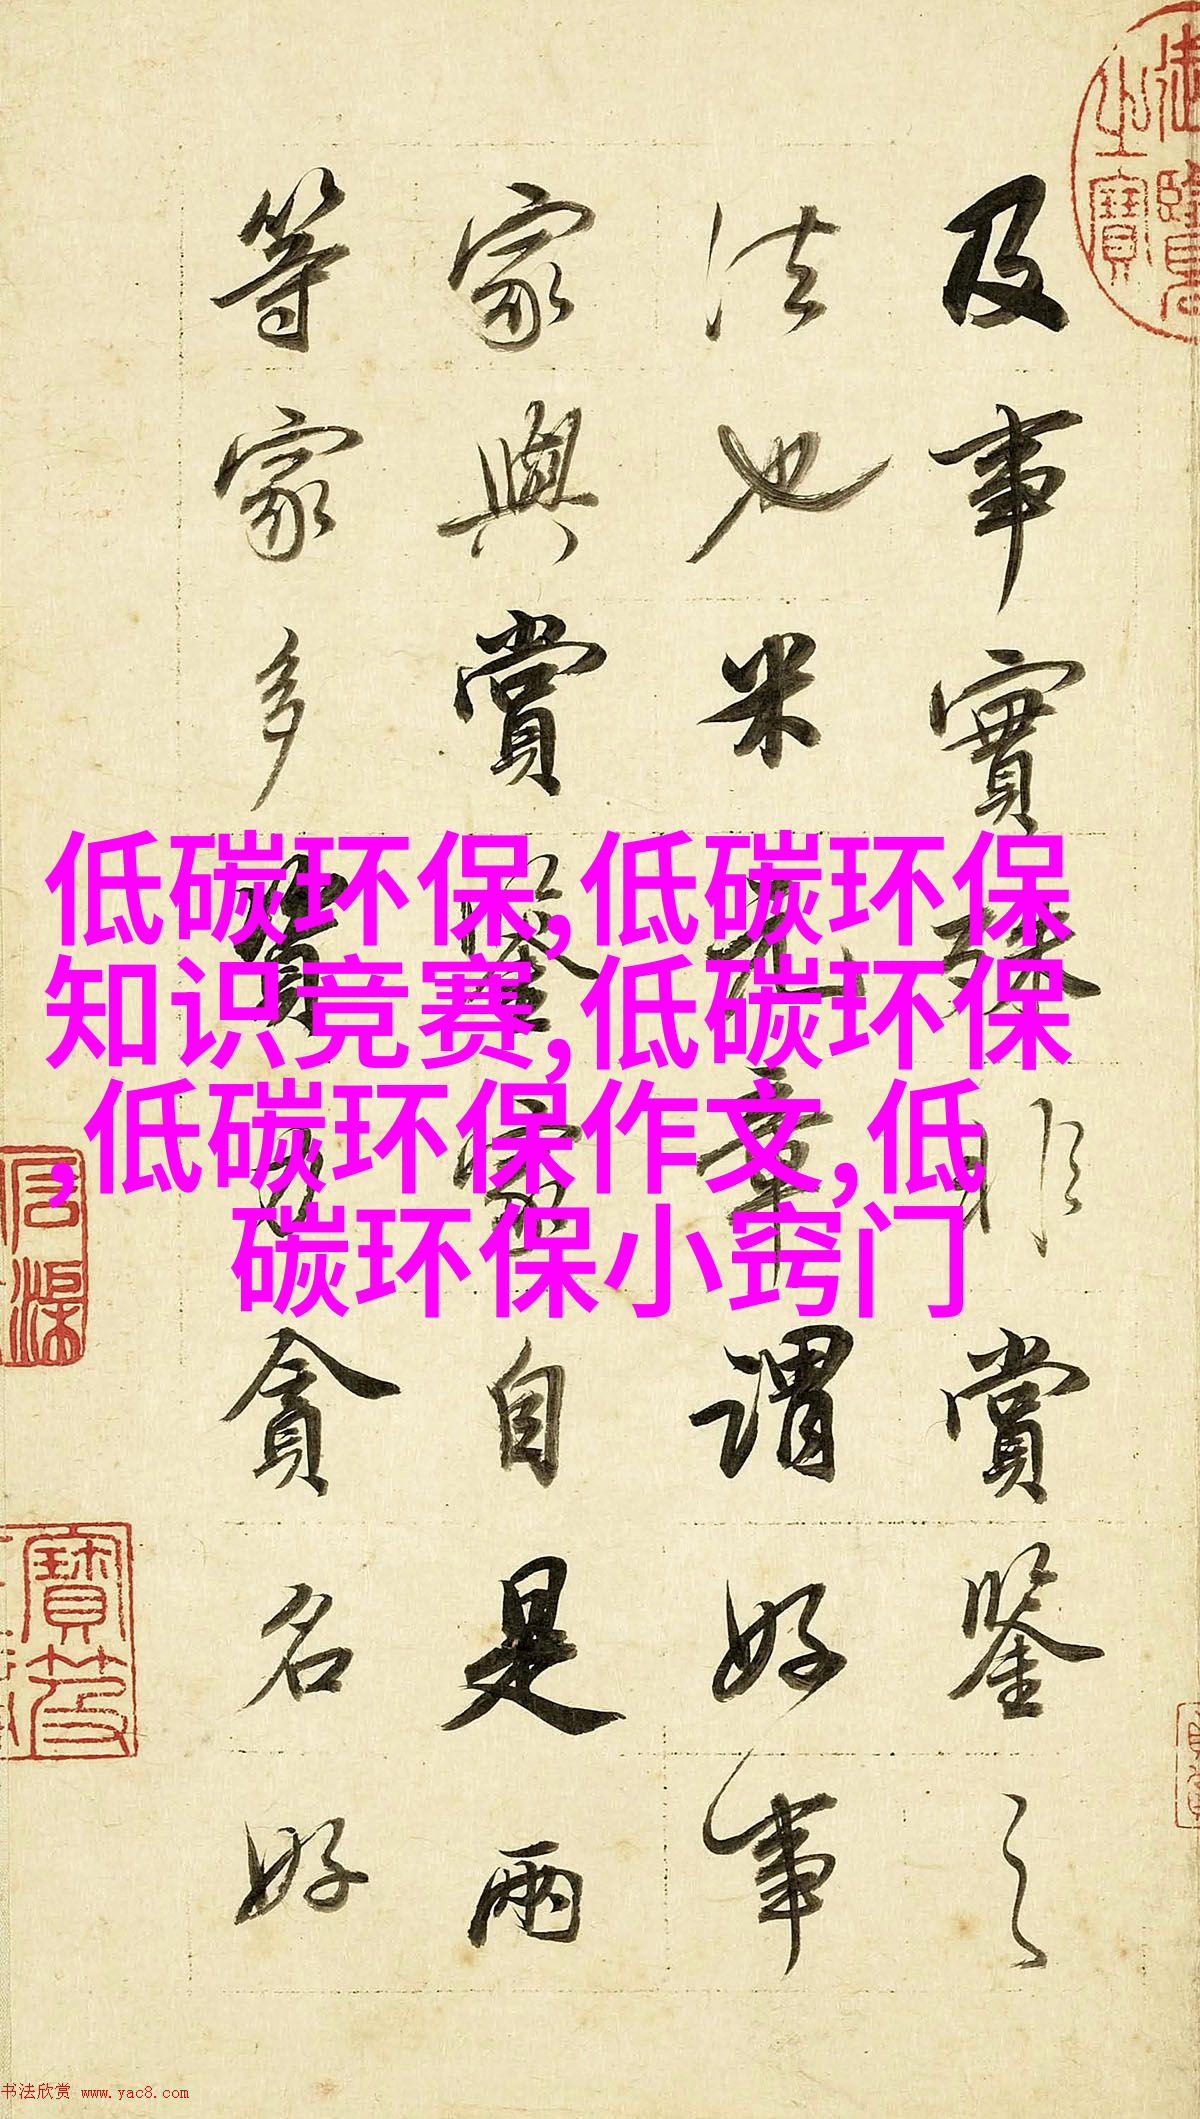 及事實殊非賞鑒之
法也米元章謂好事
家與賞鑒家自是兩
等家多資力貪名好
低碳环保,低碳环保
知识竞赛,低碳环保
,低碳环保作文,低
碳环保小窍门
书法欣赏 www.yac8.com